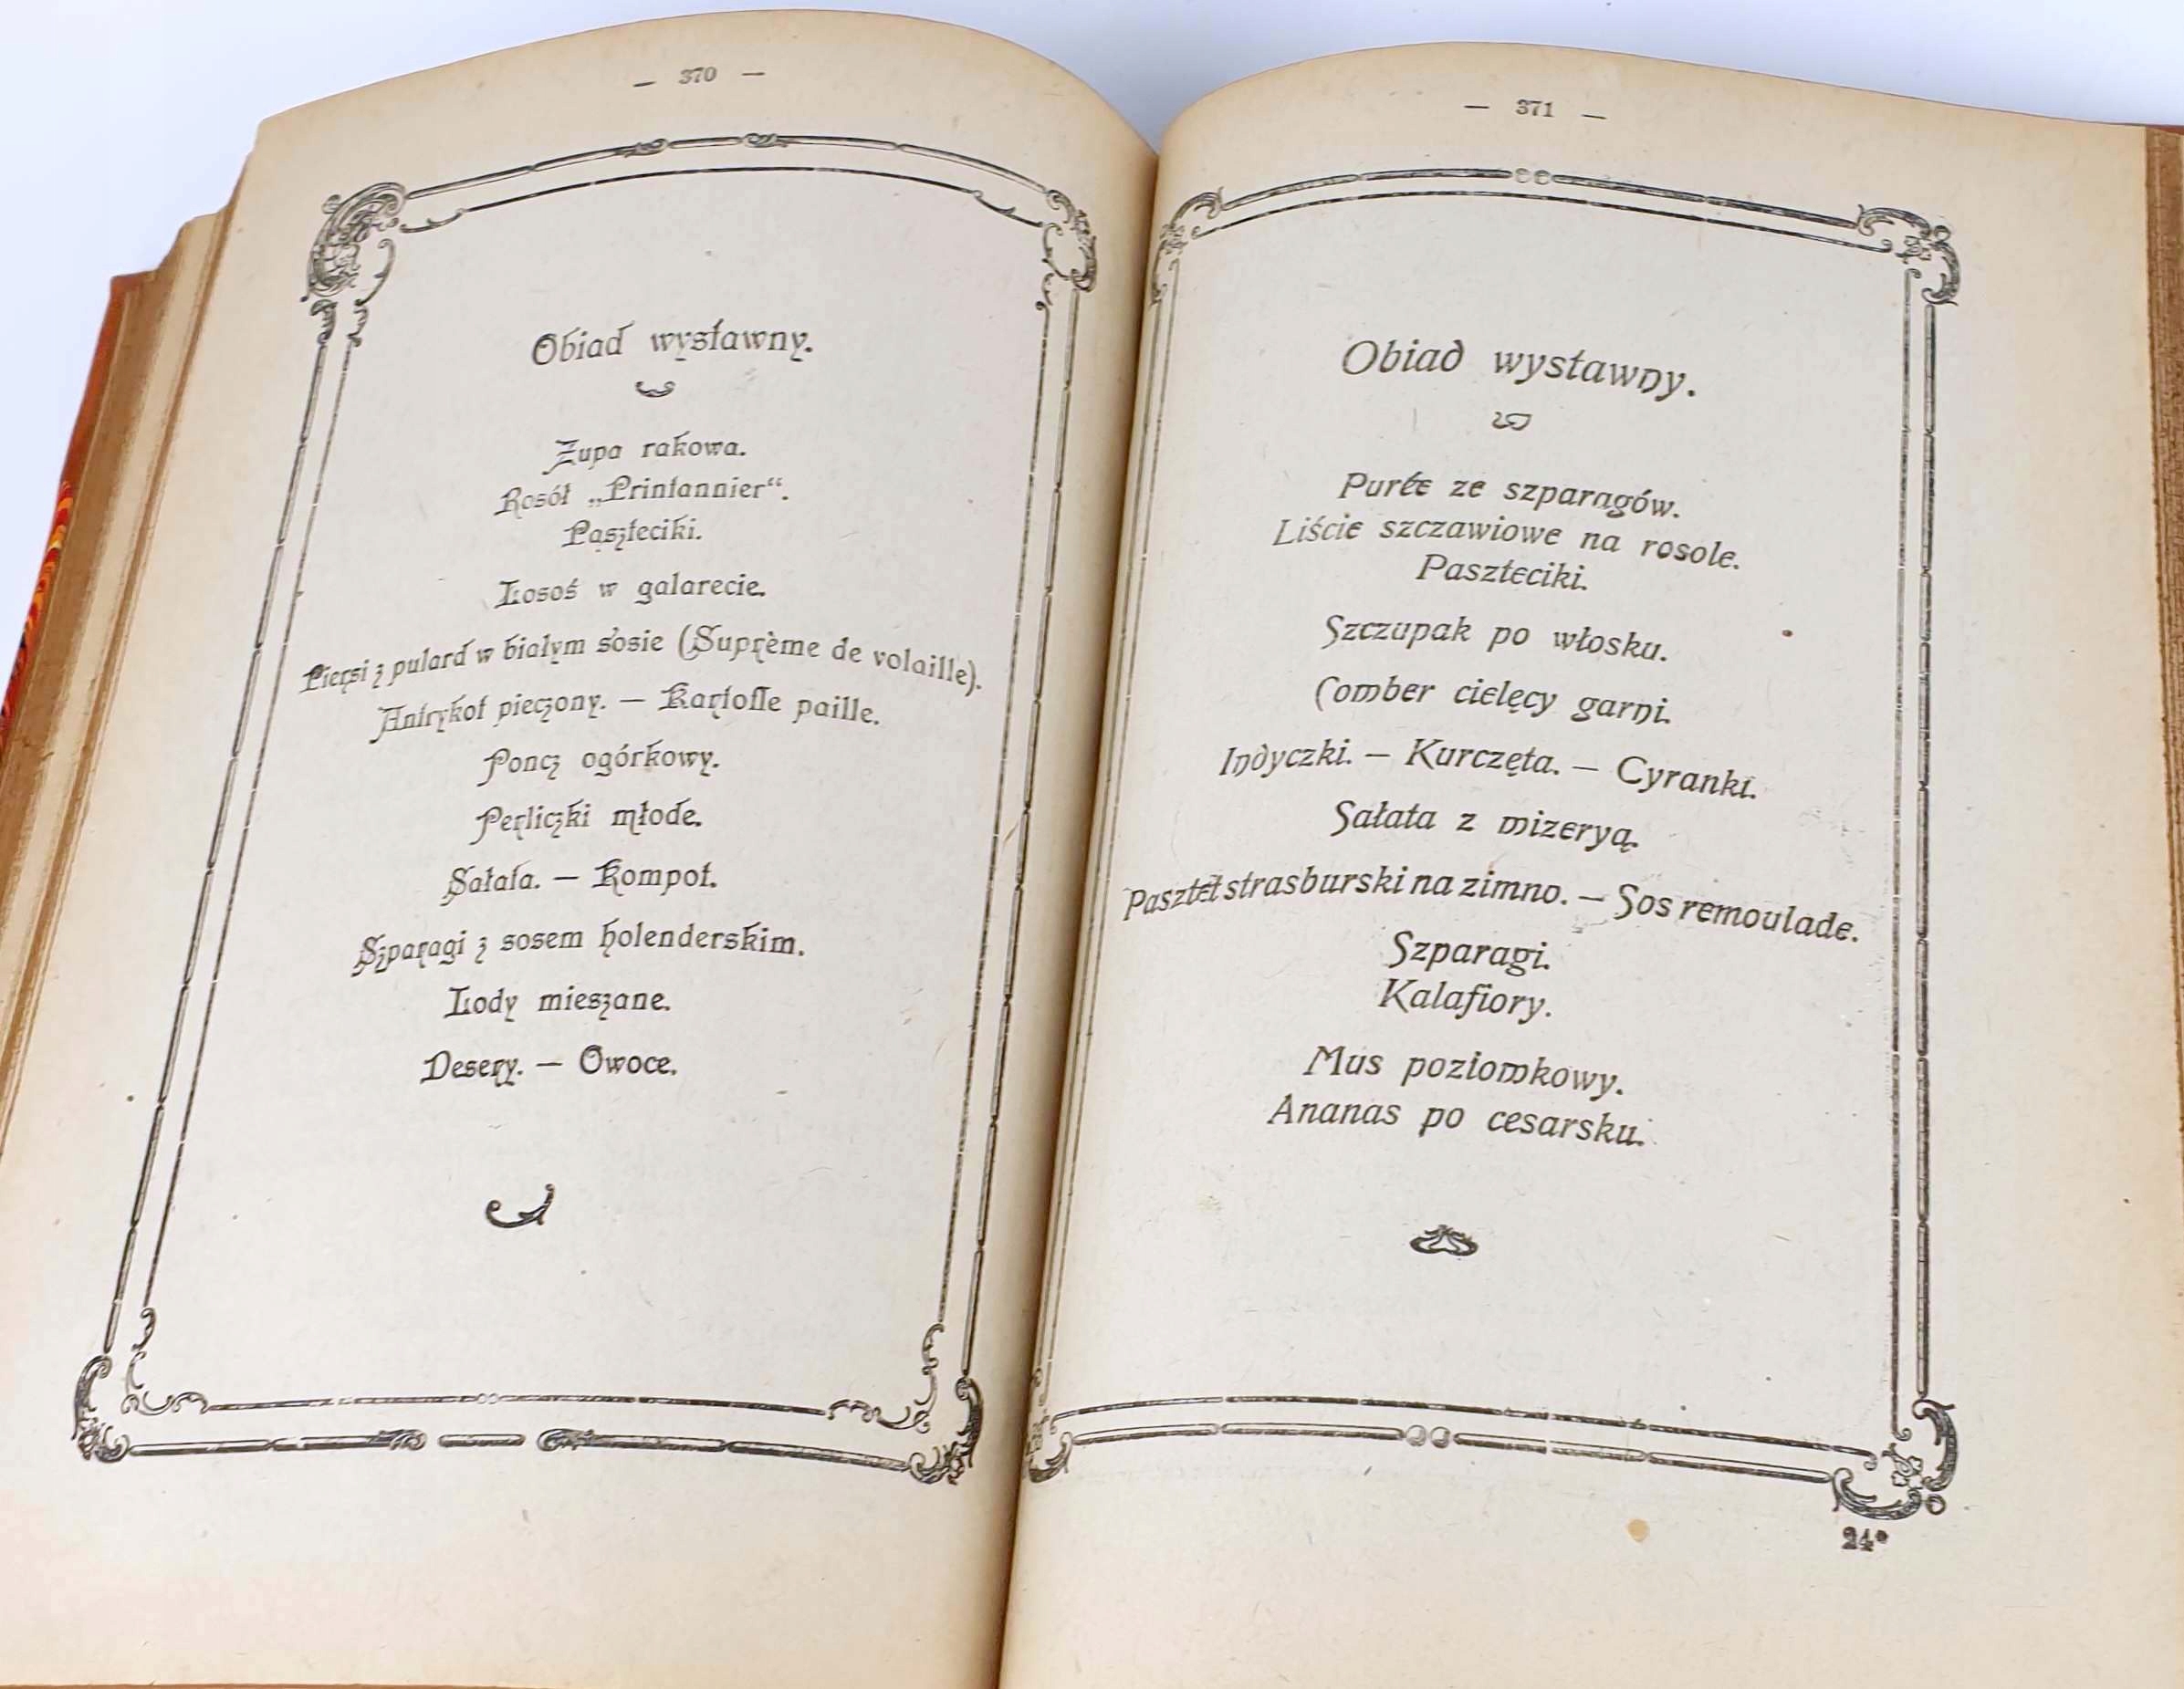 — 370 —
Obiad wystawny.
Zupa rakowa.
Rosół „Printannier“.
Paszteciki.
Łosoś w galarecie.
Piersi z pulard w białym sosie (Suprème de volaille).
Antrykot pieczony. — Kartofle paille.
Poncz ogórkowy.
Perliczki młode.
Sałata. — Kompot.
Szparagi z sosem holenderskim.
Lody mieszane.
Desery. — Owoce.
— 371 —
Obiad wystawny.
Purée ze szparagów.
Liście szczawiowe na rosole.
Paszteciki.
Szczupak po włosku.
Comber cielęcy garni.
Indyczki. — Kurczęta. — Cyranki.
Sałata z mizeryą.
Pasztet strasburski na zimno. — Sos remoulade.
Szparagi.
Kalafiory.
Mus poziomkowy.
Ananas po cesarsku.
24*